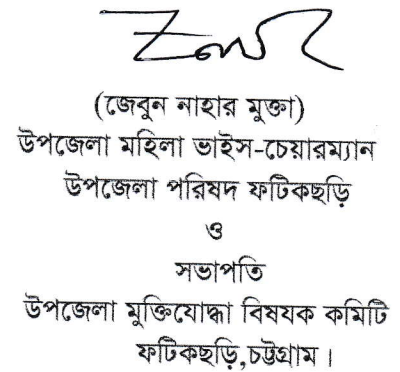 (জেবুন নাহার মুক্তা)
উপজেলা মহিলা ভাইস-চেয়ারম্যান
উপজেলা পরিষদ ফটিকছড়ি
ও
সভাপতি
উপজেলা মুক্তিযোদ্ধা বিষযক কমিটি
ফটিকছড়ি,চট্টগ্রাম।